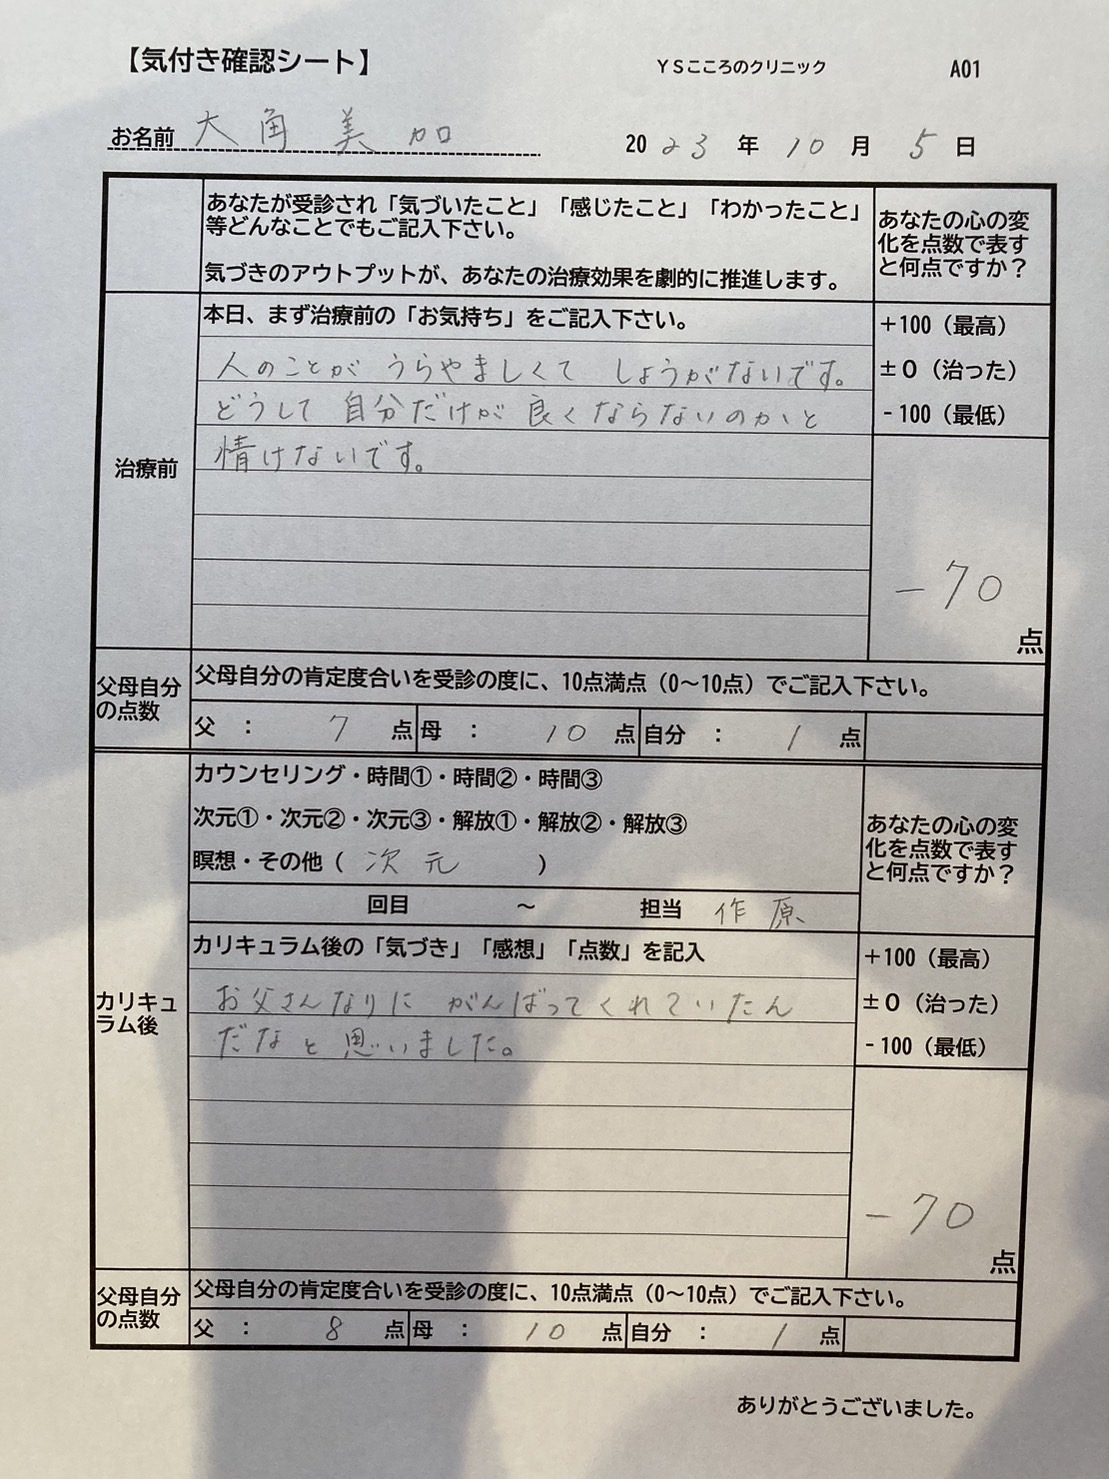 【気付き確認シート】 YSこころのクリニック A01
お名前 大角 美加 2023年 10月 5日
あなたが受診され「気づいたこと」「感じたこと」「わかったこと」
等どんなことでもご記入下さい。
気づきのアウトプットが、あなたの治療効果を劇的に推進します。
あなたの心の変
化を点数で表す
と何点ですか？
治療前
本日、まず治療前の「お気持ち」をご記入下さい。
人のことが うらやましくて しょうがないです。
どうして 自分だけが 良くならないのかと
情けないです。
+100（最高）
±0（治った）
-100（最低）
-70
点
父母自分
の点数
父母自分の肯定度合いを受診の度に、10点満点（0～10点）でご記入下さい。
父 ： 7 点 母 ： 10 点 自分 ： 1 点
カリキュ
ラム後
カウンセリング・時間①・時間②・時間③
次元①・次元②・次元③・解放①・解放②・解放③
瞑想・その他（ 次元 ）
回目 ～ 担当 作原
あなたの心の変
化を点数で表す
と何点ですか？
カリキュラム後の「気づき」「感想」「点数」を記入
お父さんなりに がんばってくれていたん
だなと 思いました。
+100（最高）
±0（治った）
-100（最低）
-70
点
父母自分
の点数
父母自分の肯定度合いを受診の度に、10点満点（0～10点）でご記入下さい。
父 ： 8 点 母 ： 10 点 自分 ： 1 点
ありがとうございました。